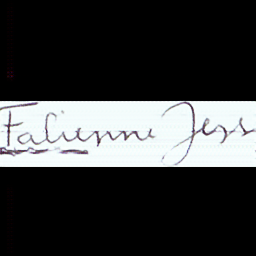 Falienne Jess